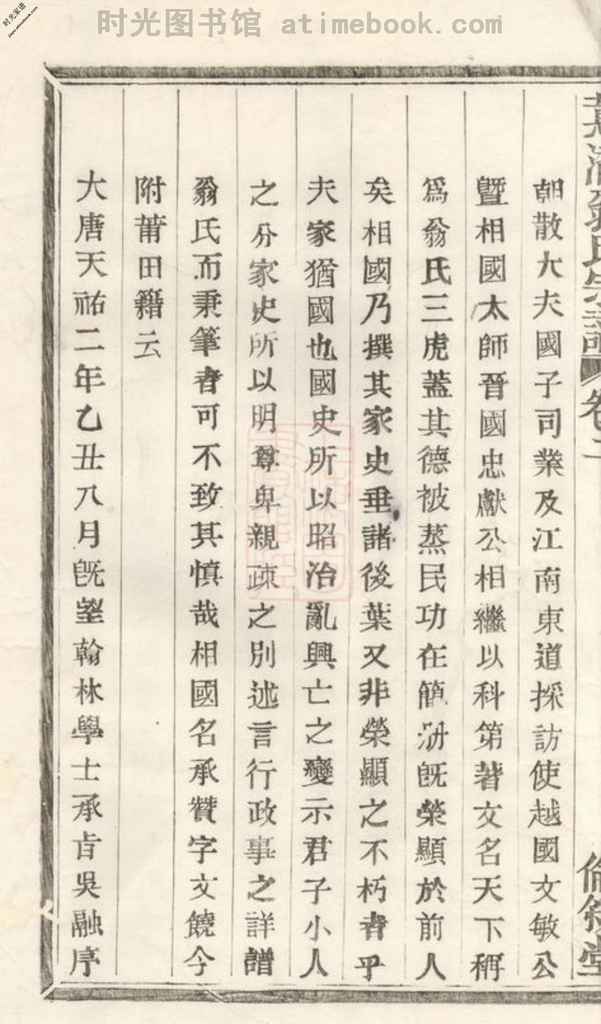 时光图书馆 - atimebook.com
时光家谱
www.atimebook.com
翁氏宗譜 卷二
倫敘堂
朝散大夫國子司業及江南東道採訪使越國文敏公
暨相國太師晉國忠獻公相繼以科第著文名天下稱
爲翁氏三虎蓋其德被蒸民功在簡冊旣榮顯於前人
矣相國乃撰其家史垂諸後葉又非榮顯之不朽者乎
夫家猶國也國史所以昭治亂興亡之變示君子小人
之分家史所以明尊卑親疎之別述言行政事之詳譜
翁氏而秉筆者可不致其慎哉相國名承贊字文饒今
附莆田籍云
大唐天祐二年乙丑八月旣望翰林學士承旨吳融序